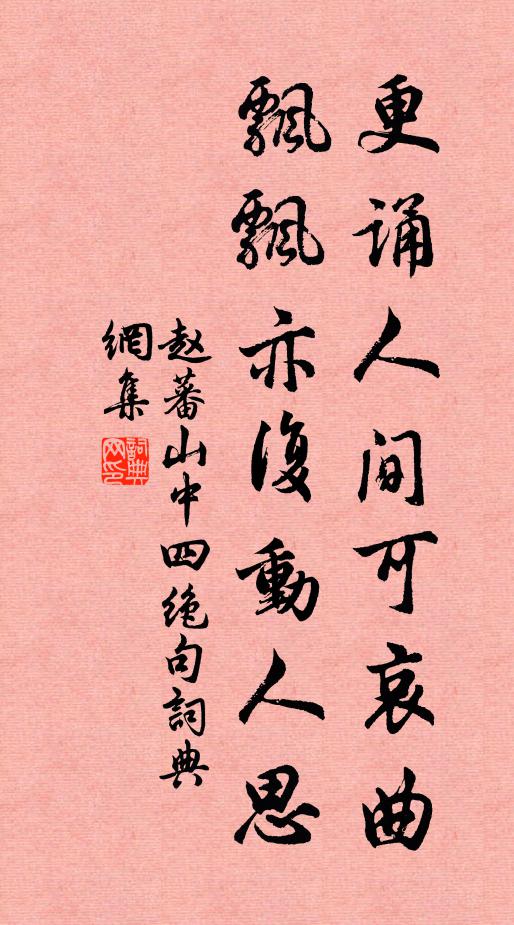 更诵人间可哀曲
飘飘亦復動人思
赵蕃山中四绝句詞典
網集
詞典网印